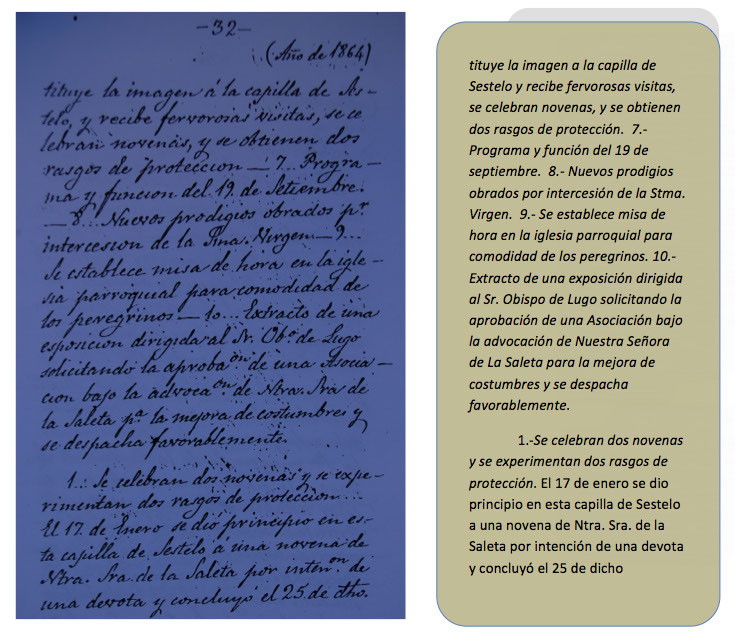 -32-
(Año de 1864)
tituye la imagen á la capilla de Ses-
telo, y recibe fervorosas visitas, se ce
lebran novenas, y se obtienen dos
rasgos de proteccion — 7... Progra-
ma y funcion del 19. de Setiembre.
— 8... Nuevos prodigios obrados pr.
intercesion de la Sma. Virgen — 9...
Se establece misa de hora en la igle-
sia parroquial para comodidad de
los peregrinos — 10... Extracto de una
esposicion dirigida al Sr. Obo. de Lugo
solicitando la aprobaon. de una Asocia-
cion bajo la advocaon. de Ntra. Sra de
la Saleta pa. la mejora de costumbres y
se despacha favorablemente.
1... Se celebran dos novenas y se expe-
rimentan dos rasgos de proteccion...
El 17. de Enero se dió principio en es-
ta capilla de Sestelo á una novena de
Ntra. Sra. de la Saleta por intenon. de
una devota y concluyó el 25. de dho.
tituye la imagen a la capilla de
Sestelo y recibe fervorosas visitas,
se celebran novenas, y se obtienen
dos rasgos de protección. 7.-
Programa y función del 19 de
septiembre. 8.- Nuevos prodigios
obrados por intercesión de la Stma.
Virgen. 9.- Se establece misa de
hora en la iglesia parroquial para
comodidad de los peregrinos. 10.-
Extracto de una exposición dirigida
al Sr. Obispo de Lugo solicitando la
aprobación de una Asociación bajo
la advocación de Nuestra Señora
de La Saleta para la mejora de
costumbres y se despacha
favorablemente.
1.-Se celebran dos novenas
y se experimentan dos rasgos de
protección. El 17 de enero se dio
principio en esta capilla de Sestelo
a una novena de Ntra. Sra. de la
Saleta por intención de una devota
y concluyó el 25 de dicho